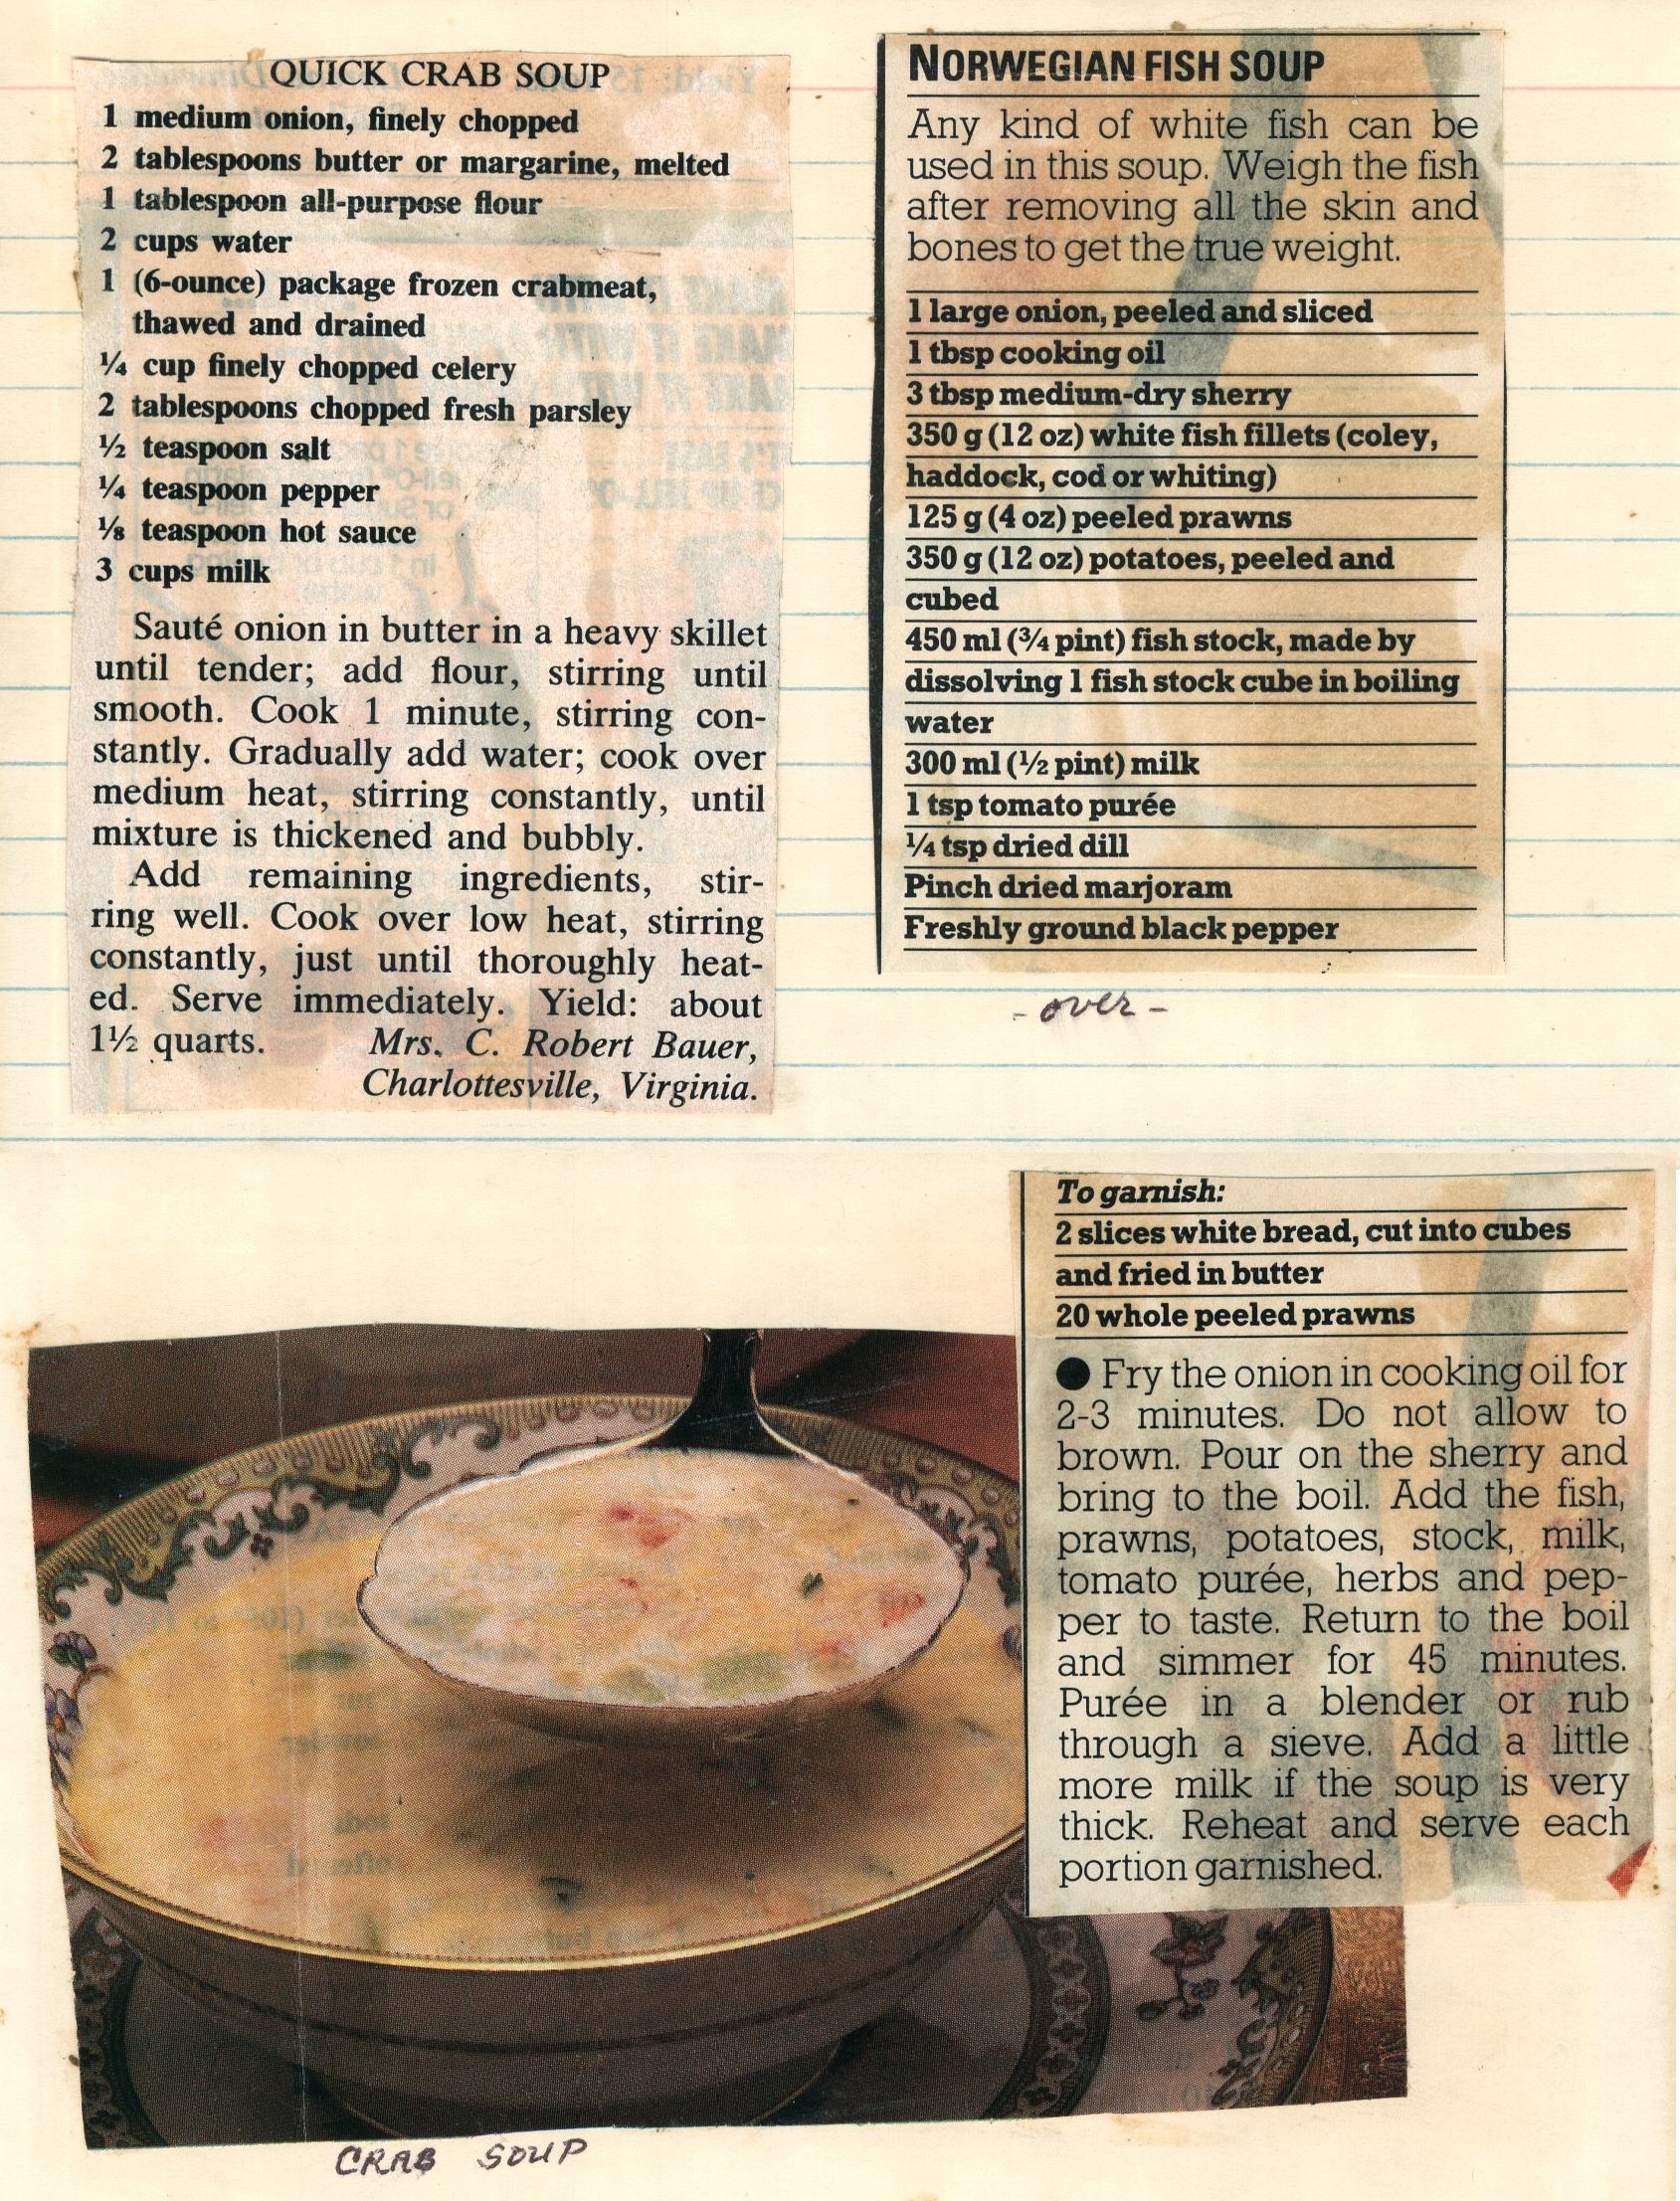 QUICK CRAB SOUP
1 medium onion, finely chopped
2 tablespoons butter or margarine, melted
1 tablespoon all-purpose flour
2 cups water
1 (6-ounce) package frozen crabmeat,
thawed and drained
¼ cup finely chopped celery
2 tablespoons chopped fresh parsley
½ teaspoon salt
¼ teaspoon pepper
⅛ teaspoon hot sauce
3 cups milk
Sauté onion in butter in a heavy skillet
until tender; add flour, stirring until
smooth. Cook 1 minute, stirring con-
stantly. Gradually add water; cook over
medium heat, stirring constantly, until
mixture is thickened and bubbly.
Add remaining ingredients, stir-
ring well. Cook over low heat, stirring
constantly, just until thoroughly heat-
ed. Serve immediately. Yield: about
1½ quarts. Mrs. C. Robert Bauer,
Charlottesville, Virginia.
NORWEGIAN FISH SOUP
Any kind of white fish can be
used in this soup. Weigh the fish
after removing all the skin and
bones to get the true weight.
1 large onion, peeled and sliced
1 tbsp cooking oil
3 tbsp medium-dry sherry
350 g (12 oz) white fish fillets (coley,
haddock, cod or whiting)
125 g (4 oz) peeled prawns
350 g (12 oz) potatoes, peeled and
cubed
450 ml (¾ pint) fish stock, made by
dissolving 1 fish stock cube in boiling
water
300 ml (½ pint) milk
1 tsp tomato purée
¼ tsp dried dill
Pinch dried marjoram
Freshly ground black pepper
- over -
To garnish:
2 slices white bread, cut into cubes
and fried in butter
20 whole peeled prawns
● Fry the onion in cooking oil for
2-3 minutes. Do not allow to
brown. Pour on the sherry and
bring to the boil. Add the fish,
prawns, potatoes, stock, milk,
tomato purée, herbs and pep-
per to taste. Return to the boil
and simmer for 45 minutes.
Purée in a blender or rub
through a sieve. Add a little
more milk if the soup is very
thick. Reheat and serve each
portion garnished.
CRAB SOUP